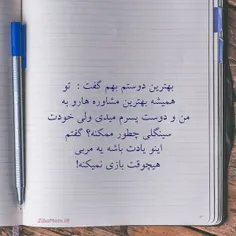 بهترین دوستم بهم گفت : تو
همیشه بهترین مشاوره هارو به
من و دوست پسرم میدی ولی خودت
سینگلی چطور ممکنه؟ گفتم
اینو یادت باشه یه مربی
هیچوقت بازی نمیکنه!
ZibaMatn.IR